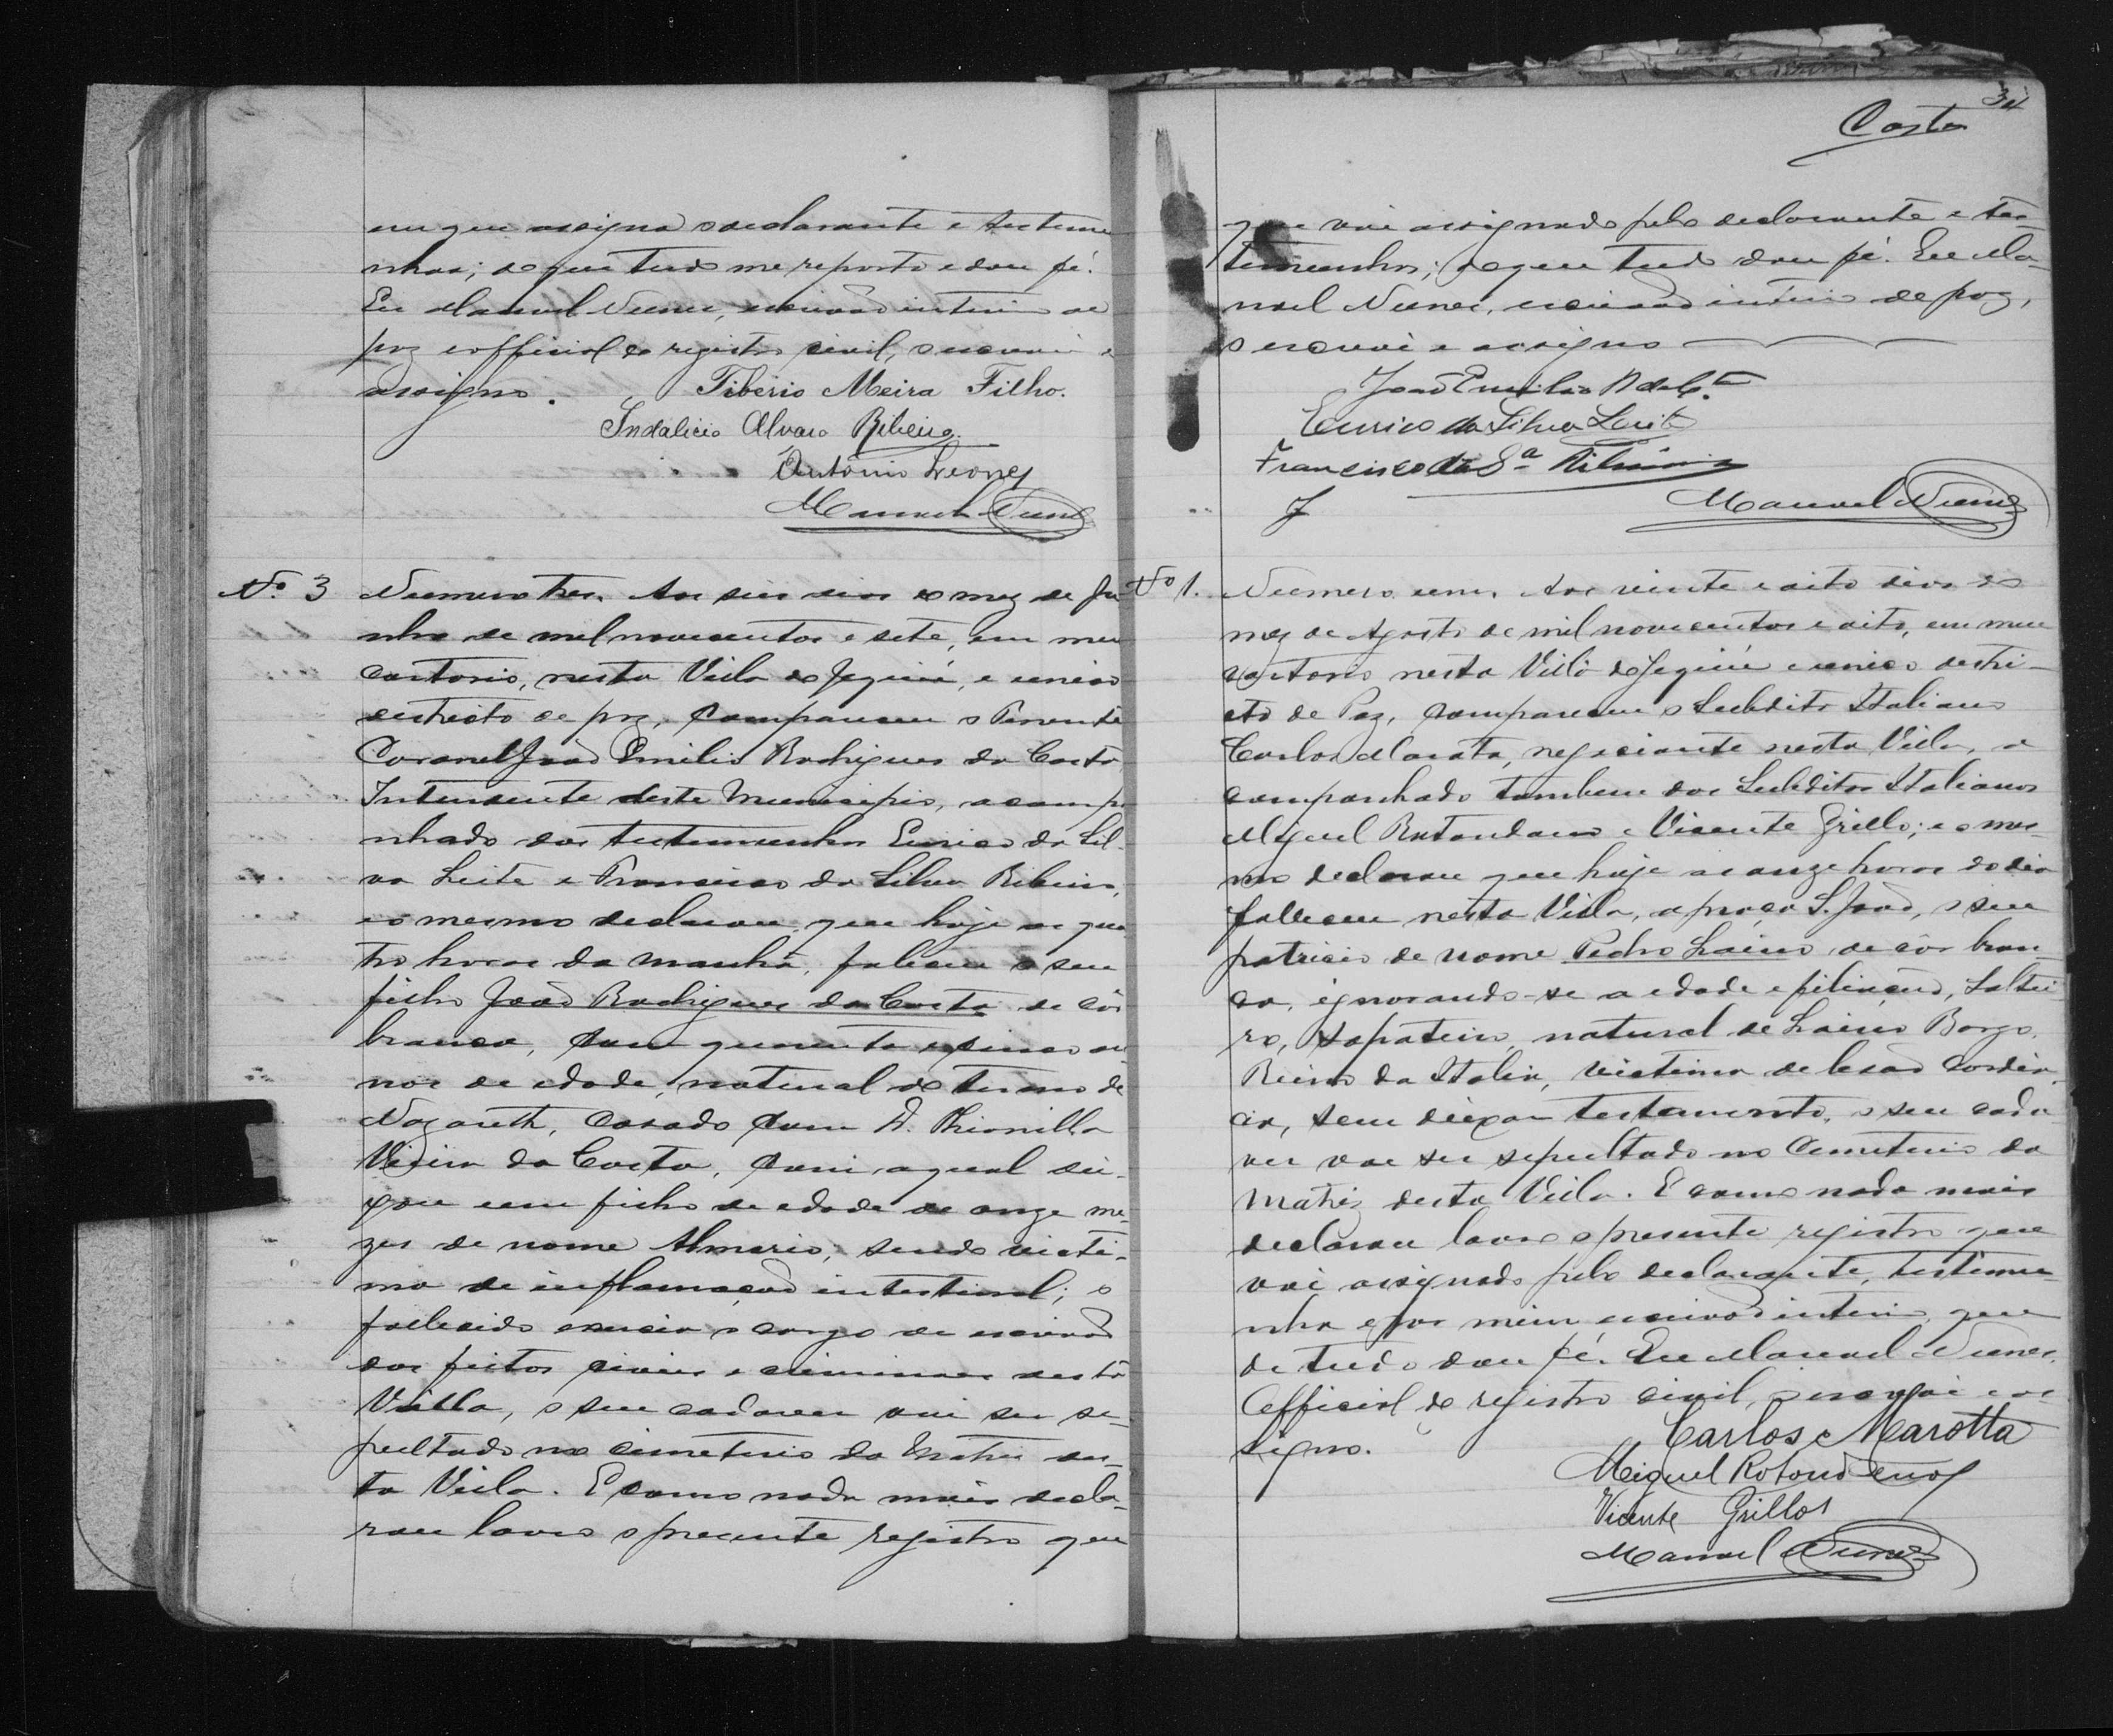 em que assigna o declarante e testemu
nhas; de que tudo me reporto e dou fé.
Eu Manuel Nunes, escrivão interino de
paz e official do registro civil, o escrevi e
assigno. Tiberio Meira Filho.
Indalicio Alvaro Ribeiro.
Antonio Leones
Manuel Nunes
Nº 3 Numero tres. Aos seis dias do mez de Ju
nho de mil novecentos e sete, em meu
cartorio, nesta Villa de Jequié, e unico
destricto de paz, compareceu o Tenente
Coronel João Emilio Rodrigues da Costa
Intendente deste Municipio, acompa
nhado das testemunhas Eurico da Sil-
va Leite e Francisco da Silva Ribeiro,
e o mesmo declarou que hoje as qua
tro horas da manhã, faleceu o seu
filho João Rodrigues da Costa de côr
branca, com quarenta e cinco an
nos de edade, natural do termo de
Nazareth, casado com D.
Vieira da Costa, com a qual dei-
xou um filho de edade de onze me-
zes de nome Almerio; sendo victi-
ma de inflamação intestinal; o
fallecido exercia o cargo de escrivão
dos feitos civeis e criminaes desta
Villa, o seu cadaver vai ser se-
pultado no cimeterio da Matriz des-
ta Villa. E como nada mais decla-
rou lavro o presente registro que
34
Costa
que vai assignado pelo declarante e tes-
temunhas; do que tudo dou fé. Eu Ma-
nuel Nunes, escrivão interino de paz,
o escrevi e assigno
João Emilio R da Cta
Eurico da Silva Leite
Francisco da Sa Ribeiro
Manuel Nunes
Nº 1. Numero um. Aos vinte e oito dias do
mez de Agosto de mil novecentos e oito, em meu
cartorio nesta Villa de Jequié e unico destri-
cto de Paz, compareceu o Subdito Italiano
Carlos Marota, negociante nesta Villa, a
companhado tambem dos Subditos Italianos
Miguel Rotondano e Vicente Grillo; e o mes-
mo declarou que hoje as onze horas do dia
falleceu nesta Villa, a praça S. João, o seu
patricio de nome Pedro Laino de côr bran-
ca, ignorando-se a edade e filiação, Soltei-
ro, sapateiro, natural de Laino Borgo,
Reino da Italia, victima de lesão cardia-
ca, sem deixar testamento, o seu cada-
ver vae ser sepultado no Cemeterio da
Matriz desta Villa. E como nada mais
declarou lavro o presente registro que
vai assignado pelo declarante, testemu-
nha e por mim escrivão interino, que
de tudo dou fé. Eu Manuel Nunes,
Official do registro civil, o escrevi e as-
signo. Carlos Marotta
Miguel Rotondano
Vicente Grillo
Manuel Nunes